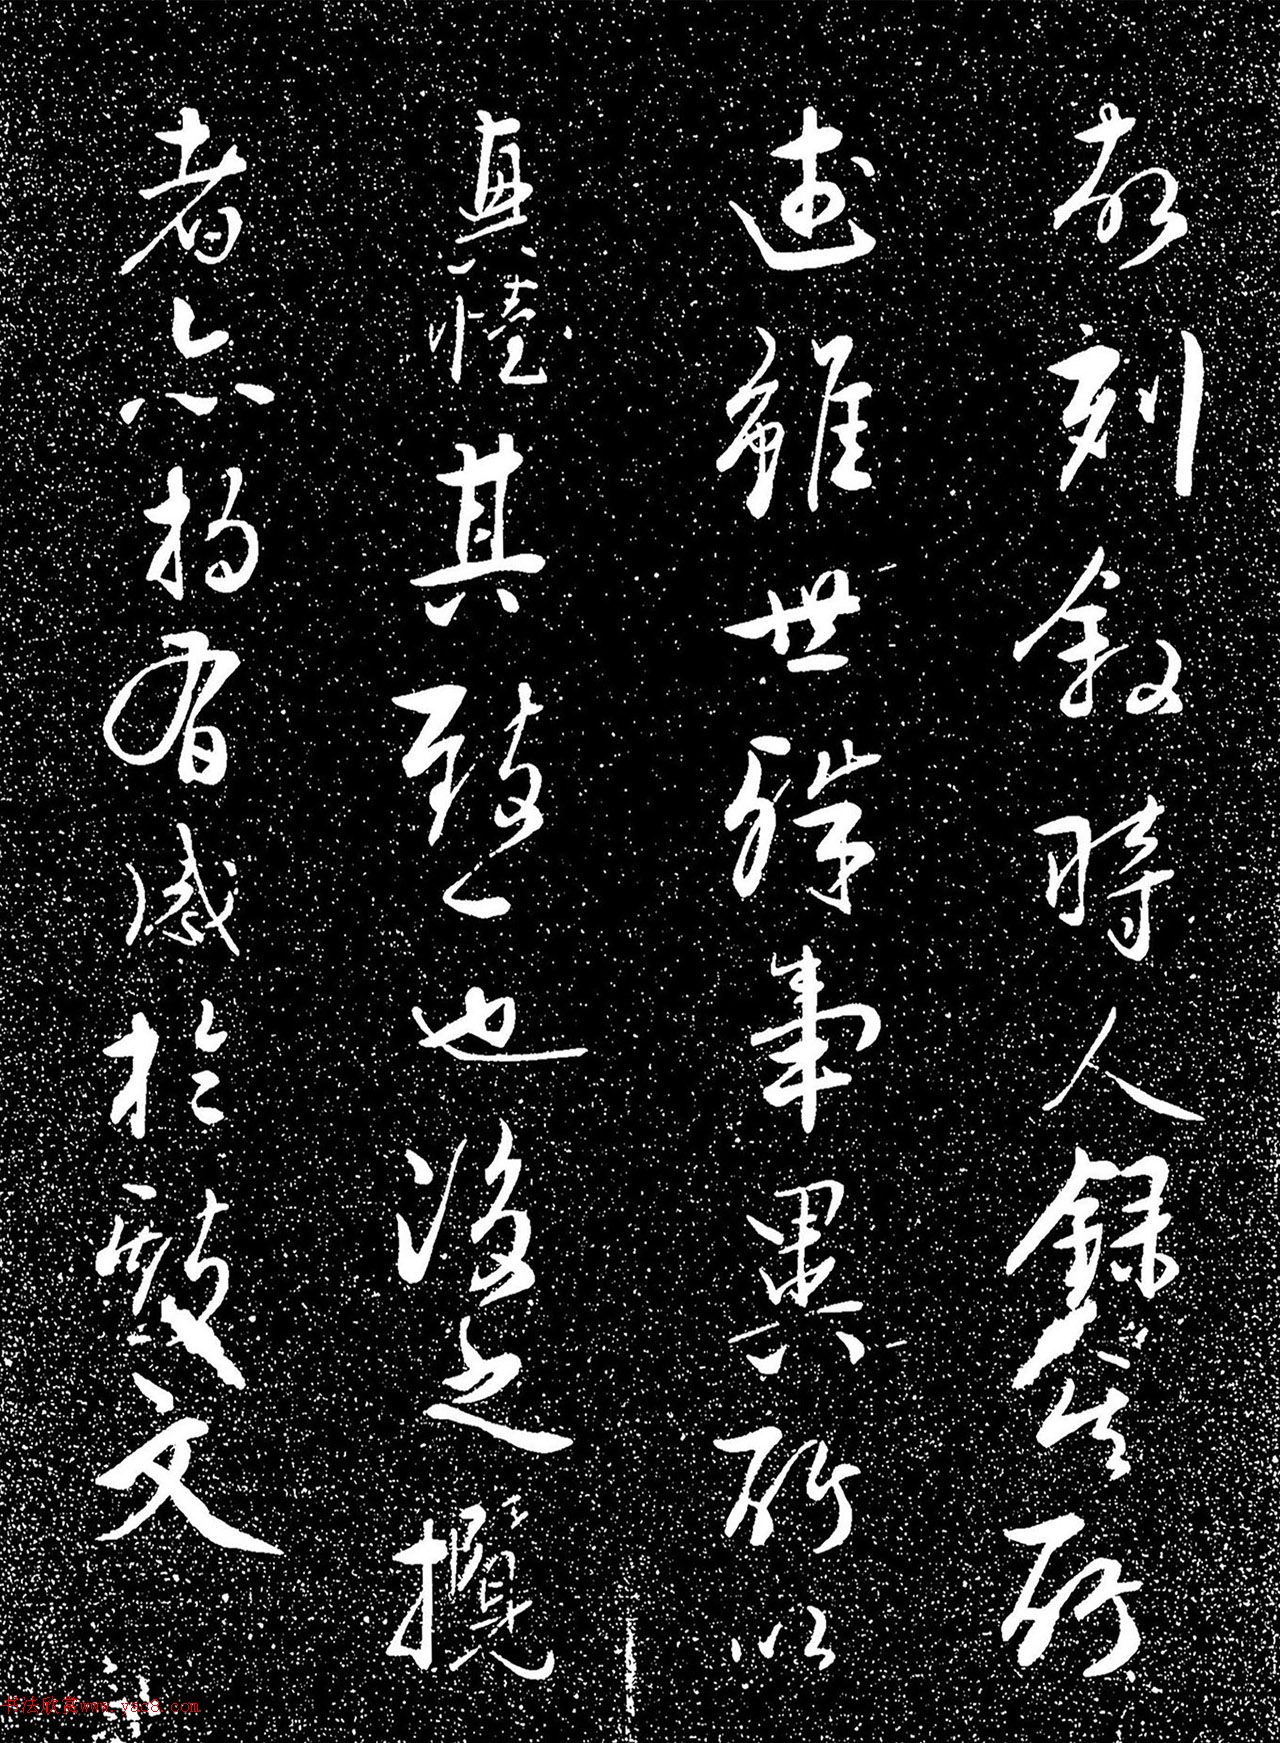 故列敘時人錄其所
述雖世殊事異所以
興懷其致一也後之攬
者亦將有感於斯文
书法欣赏www.yac8.com